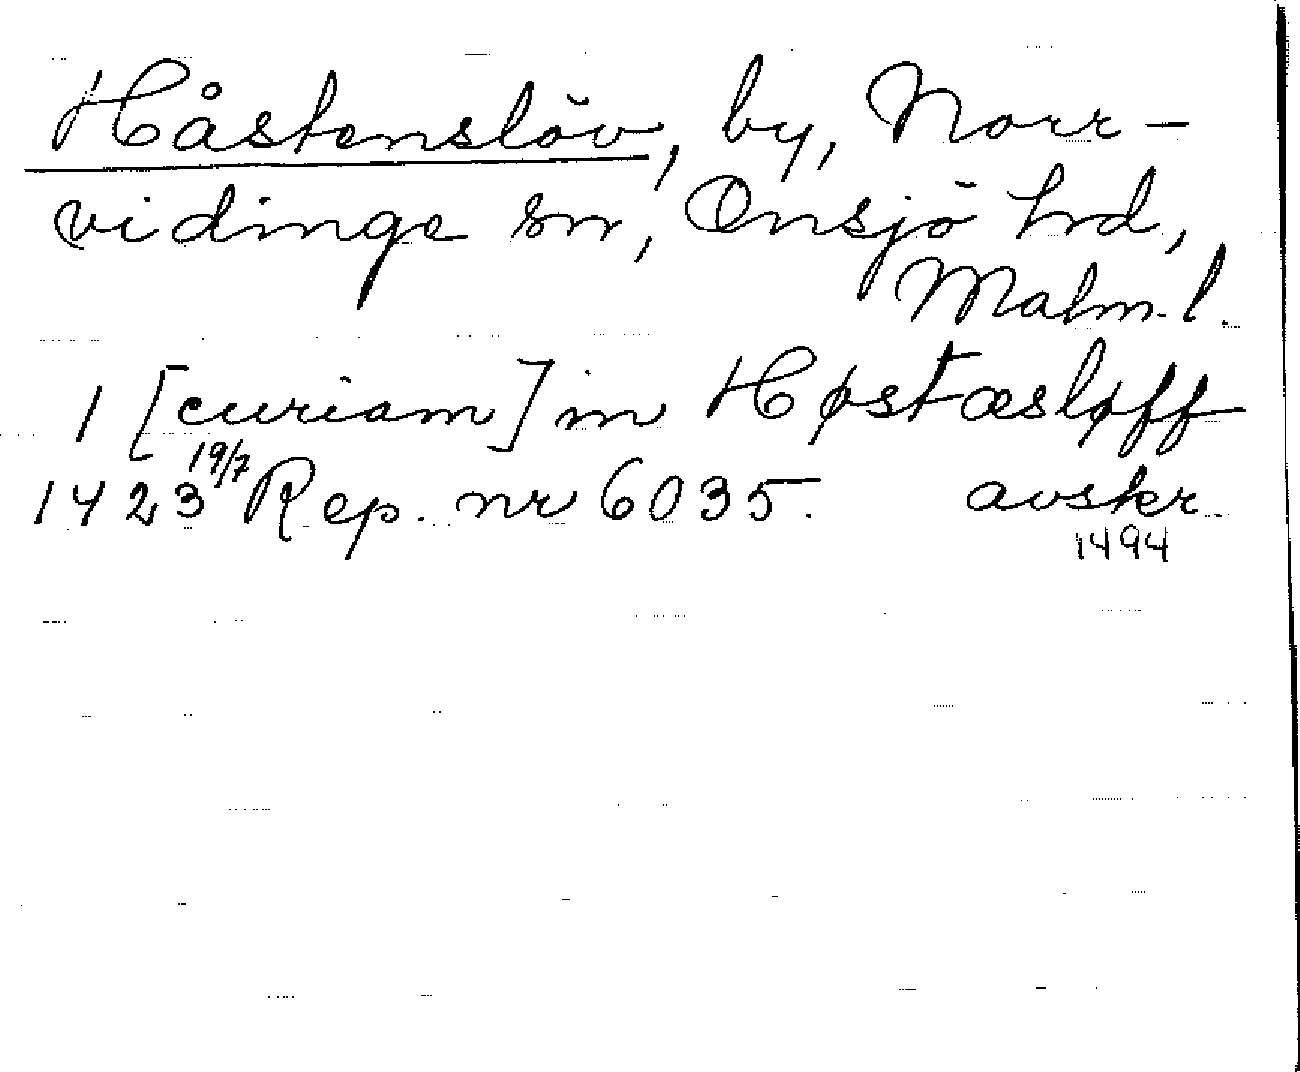 Håstenslöv, by, Norr-
vidinge sn, Onsjö hrd,
Malm. l.
1 [curiam] in Høstæsløff
1423 19/7 Rep. nr 6035. avskr.
1494